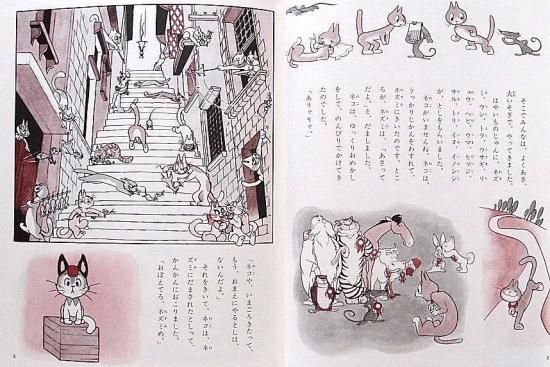 そこでみんなは、よくあさ、
大いそぎで、やってきました。
はやいものじゅんに、ネズ
ミ・ウシ・トラ・ウサギ・リ
ュウ・ヘビ・ウマ・ヒツジ・
サル・トリ・イヌ・イノシシ
が、としをもらいました。
ネコがいませんね。ネコは、
うっかりじかんをわすれて、
ネズミにきいたのです。とこ
ろが、ネズミは、「あさって
だよ。」と、だましました。
ネコは、ゆっくりおめかし
をして、のんびりでかけてき
たのでした。
「ありゃりゃ。」
2
「ネコや、いまごろきたって、
もう、おまえにやるとしは、
ないんだよ。」
それをきいて、ネコは、ネ
ズミにだまされたとしって、
かんかんにおこりました。
「おぼえてろ、ネズミめ。」
3